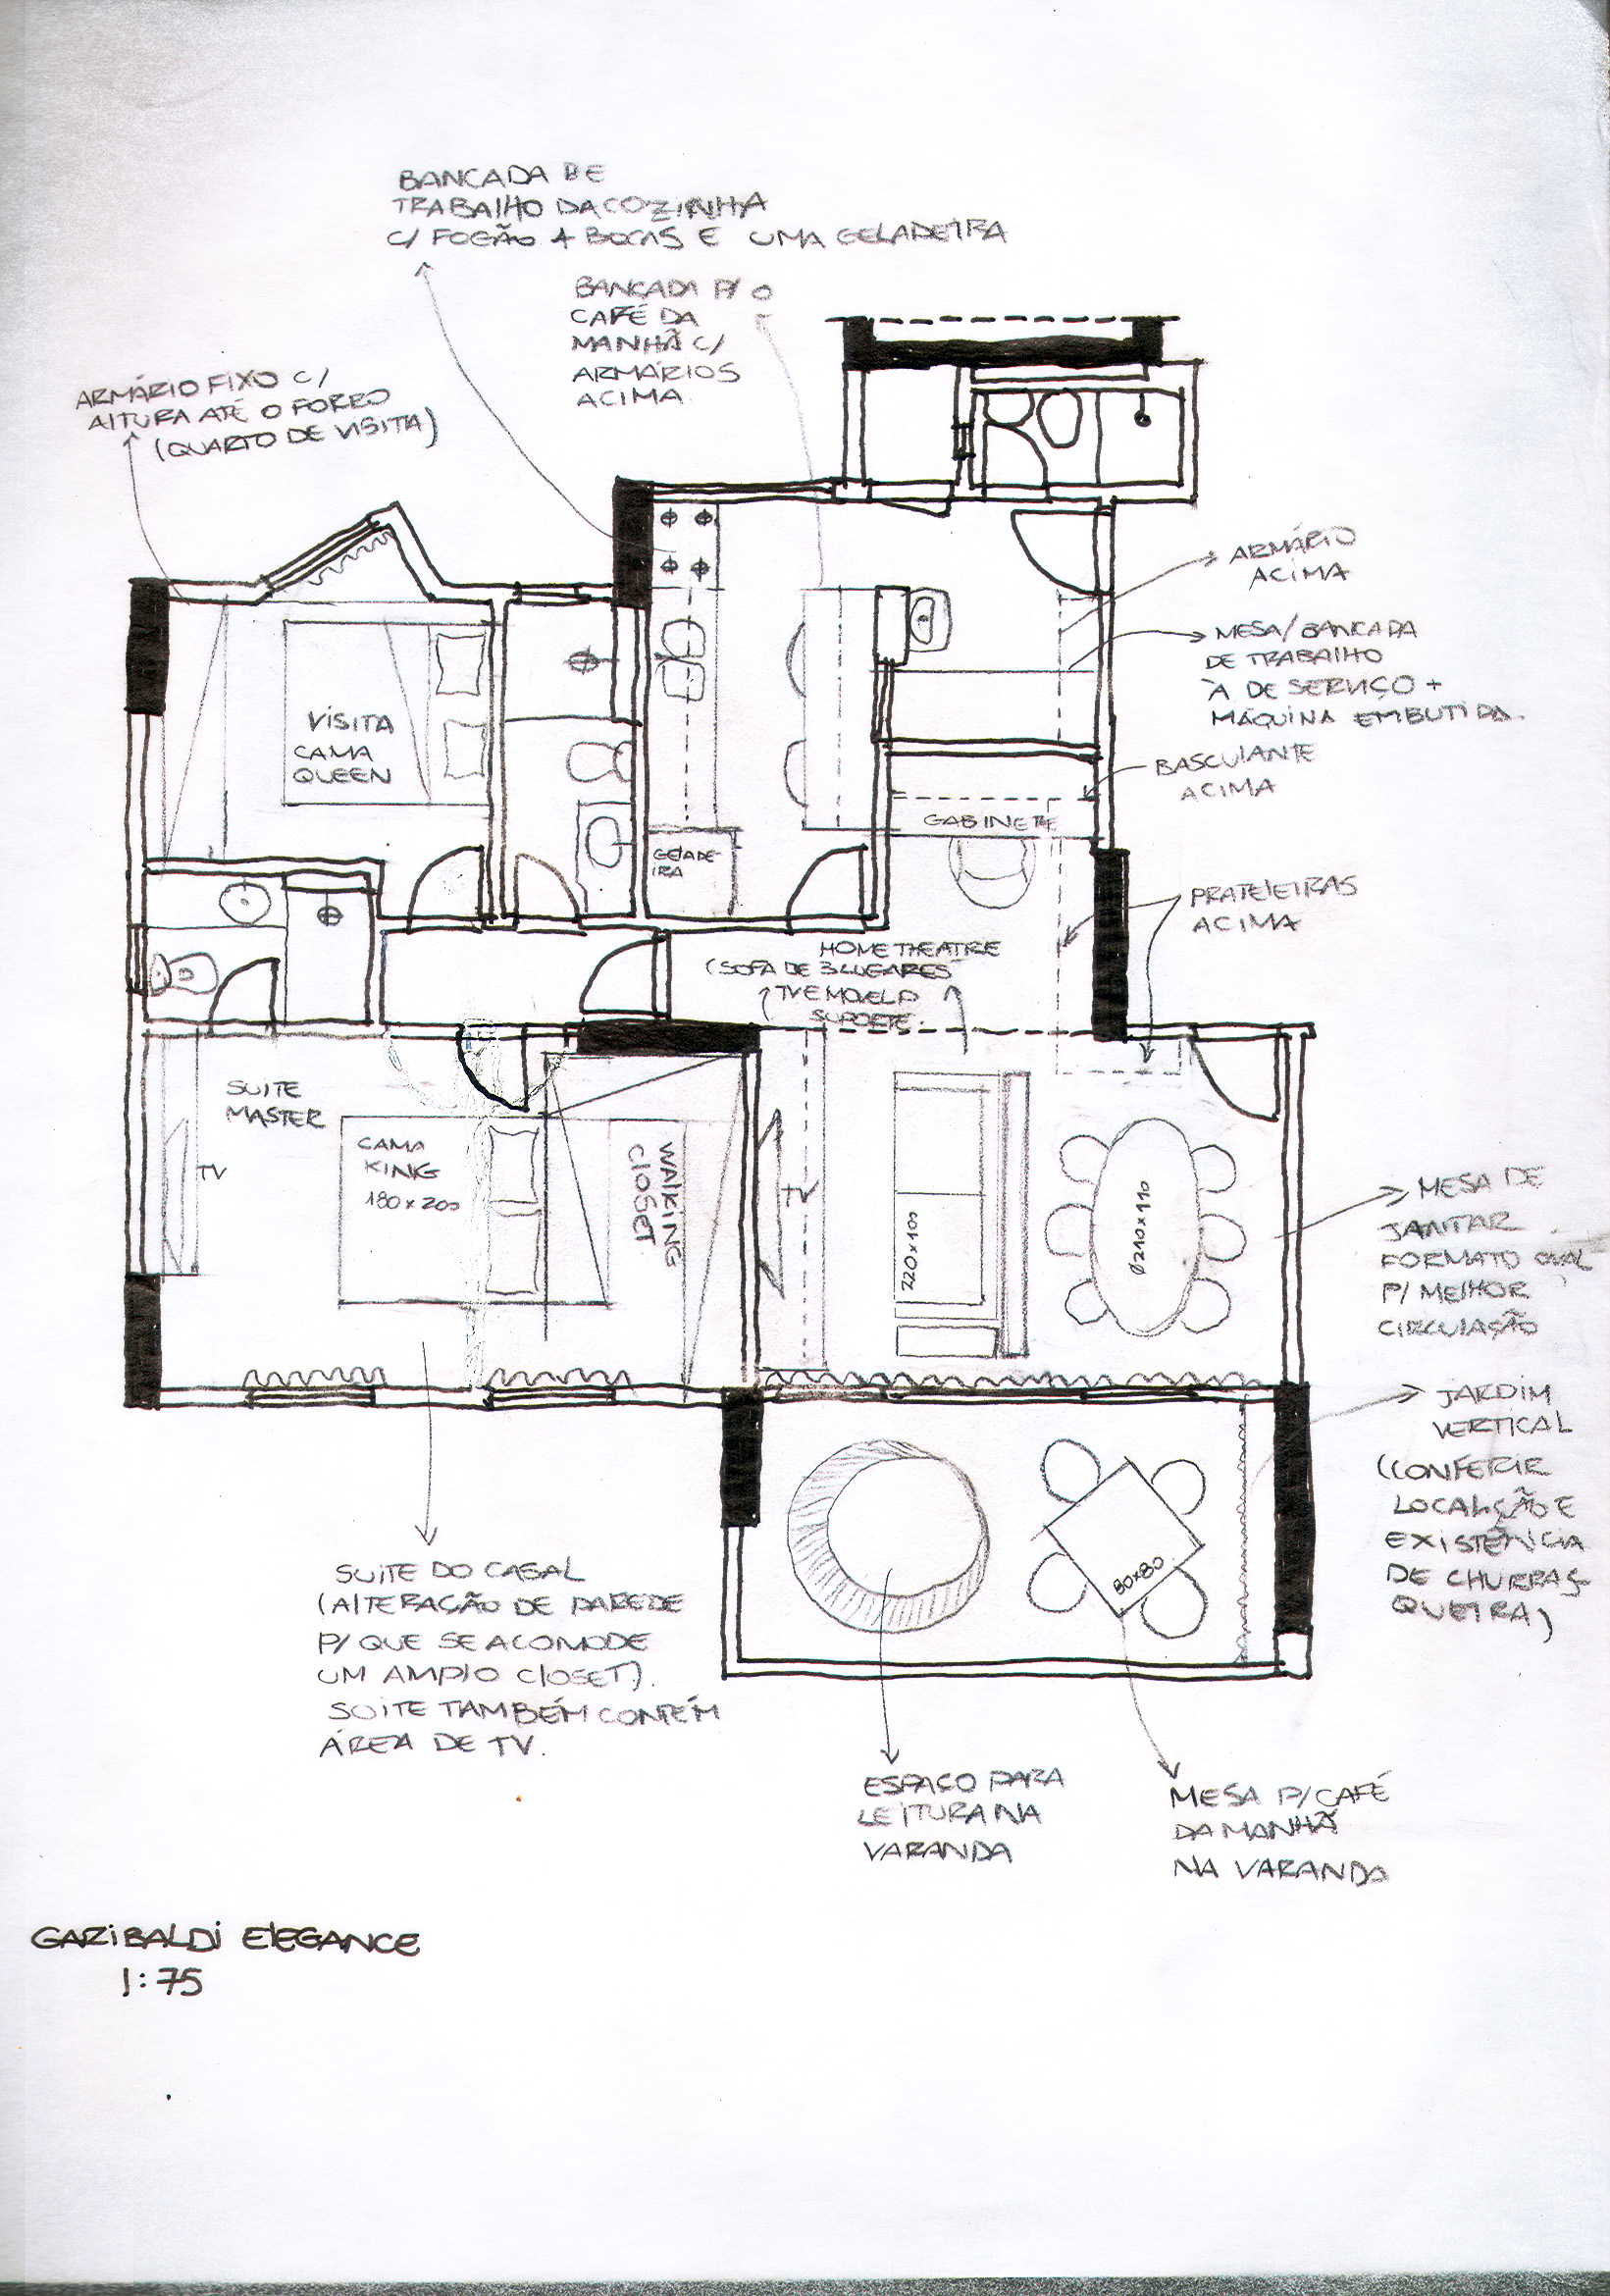 BANCADA DE
TRABALHO DA COZINHA
C/ FOGÃO 4 BOCAS E UMA GELADEIRA
BANCADA P/ O
CAFÉ DA
MANHÃ C/
ARMÁRIOS
ACIMA
ARMÁRIO FIXO C/
ALTURA ATÉ O FORRO
(QUARTO DE VISITA)
ARMÁRIO
ACIMA
MESA/BANCADA
DE TRABALHO
À DE SERVIÇO +
MÁQUINA EMBUTIDA.
VISITA
CAMA
QUEEN
BASCULANTE
ACIMA
GABINETE
GELADE-
IRA
PRATELEIRAS
ACIMA
HOME THEATRE
(SOFA DE 3 LUGARES
TV E MOVEL P/
SUPORTE.
SUITE
MASTER
TV
CAMA
KING
180x200
WALKING
CLOSET
TV
220x100
Ø210x110
MESA DE
JANTAR
FORMATO OVAL
P/ MELHOR
CIRCULAÇÃO
JARDIM
VERTICAL
(CONFERIR
LOCALÇÃO E
EXISTÊNCIA
DE CHURRAS-
QUEIRA)
80x80
SUITE DO CASAL
(ALTERAÇÃO DE PAREDE
P/ QUE SE ACOMODE
UM AMPLO CLOSET).
SUITE TAMBÉM CONTÉM
ÁREA DE TV.
ESPAÇO PARA
LEITURA NA
VARANDA
MESA P/ CAFÉ
DA MANHÃ
NA VARANDA
GARIBALDI ELEGANCE
1:75